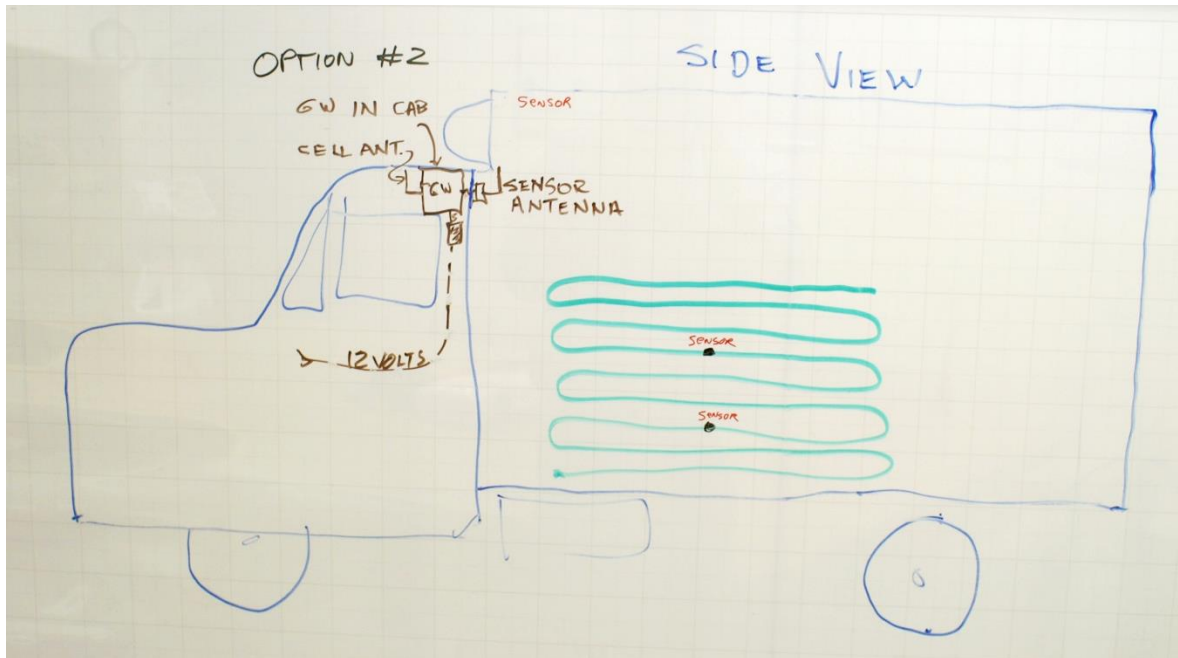 OPTION #2
SIDE VIEW
GW IN CAB
SENSOR
CELL ANT.
GW
SENSOR
ANTENNA
12 VOLTS
SENSOR
SENSOR